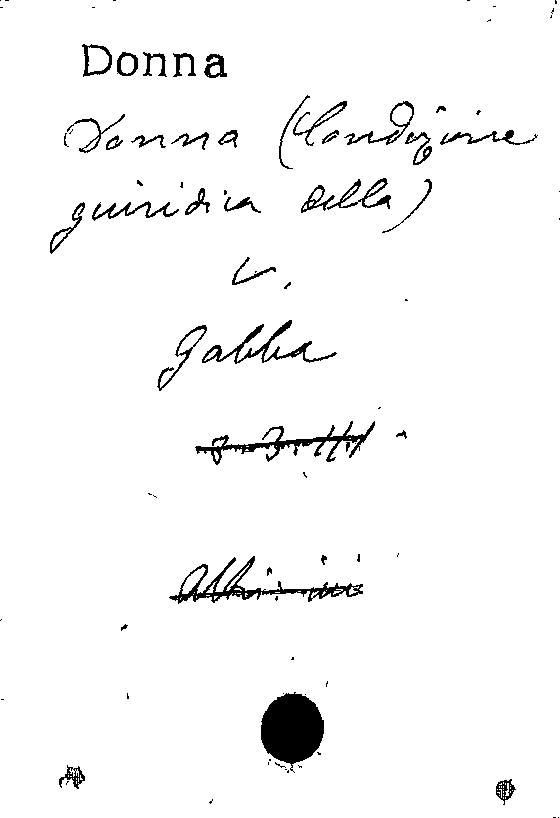 Donna
Donna (Condizione
giuridica della)
v.
Gabba